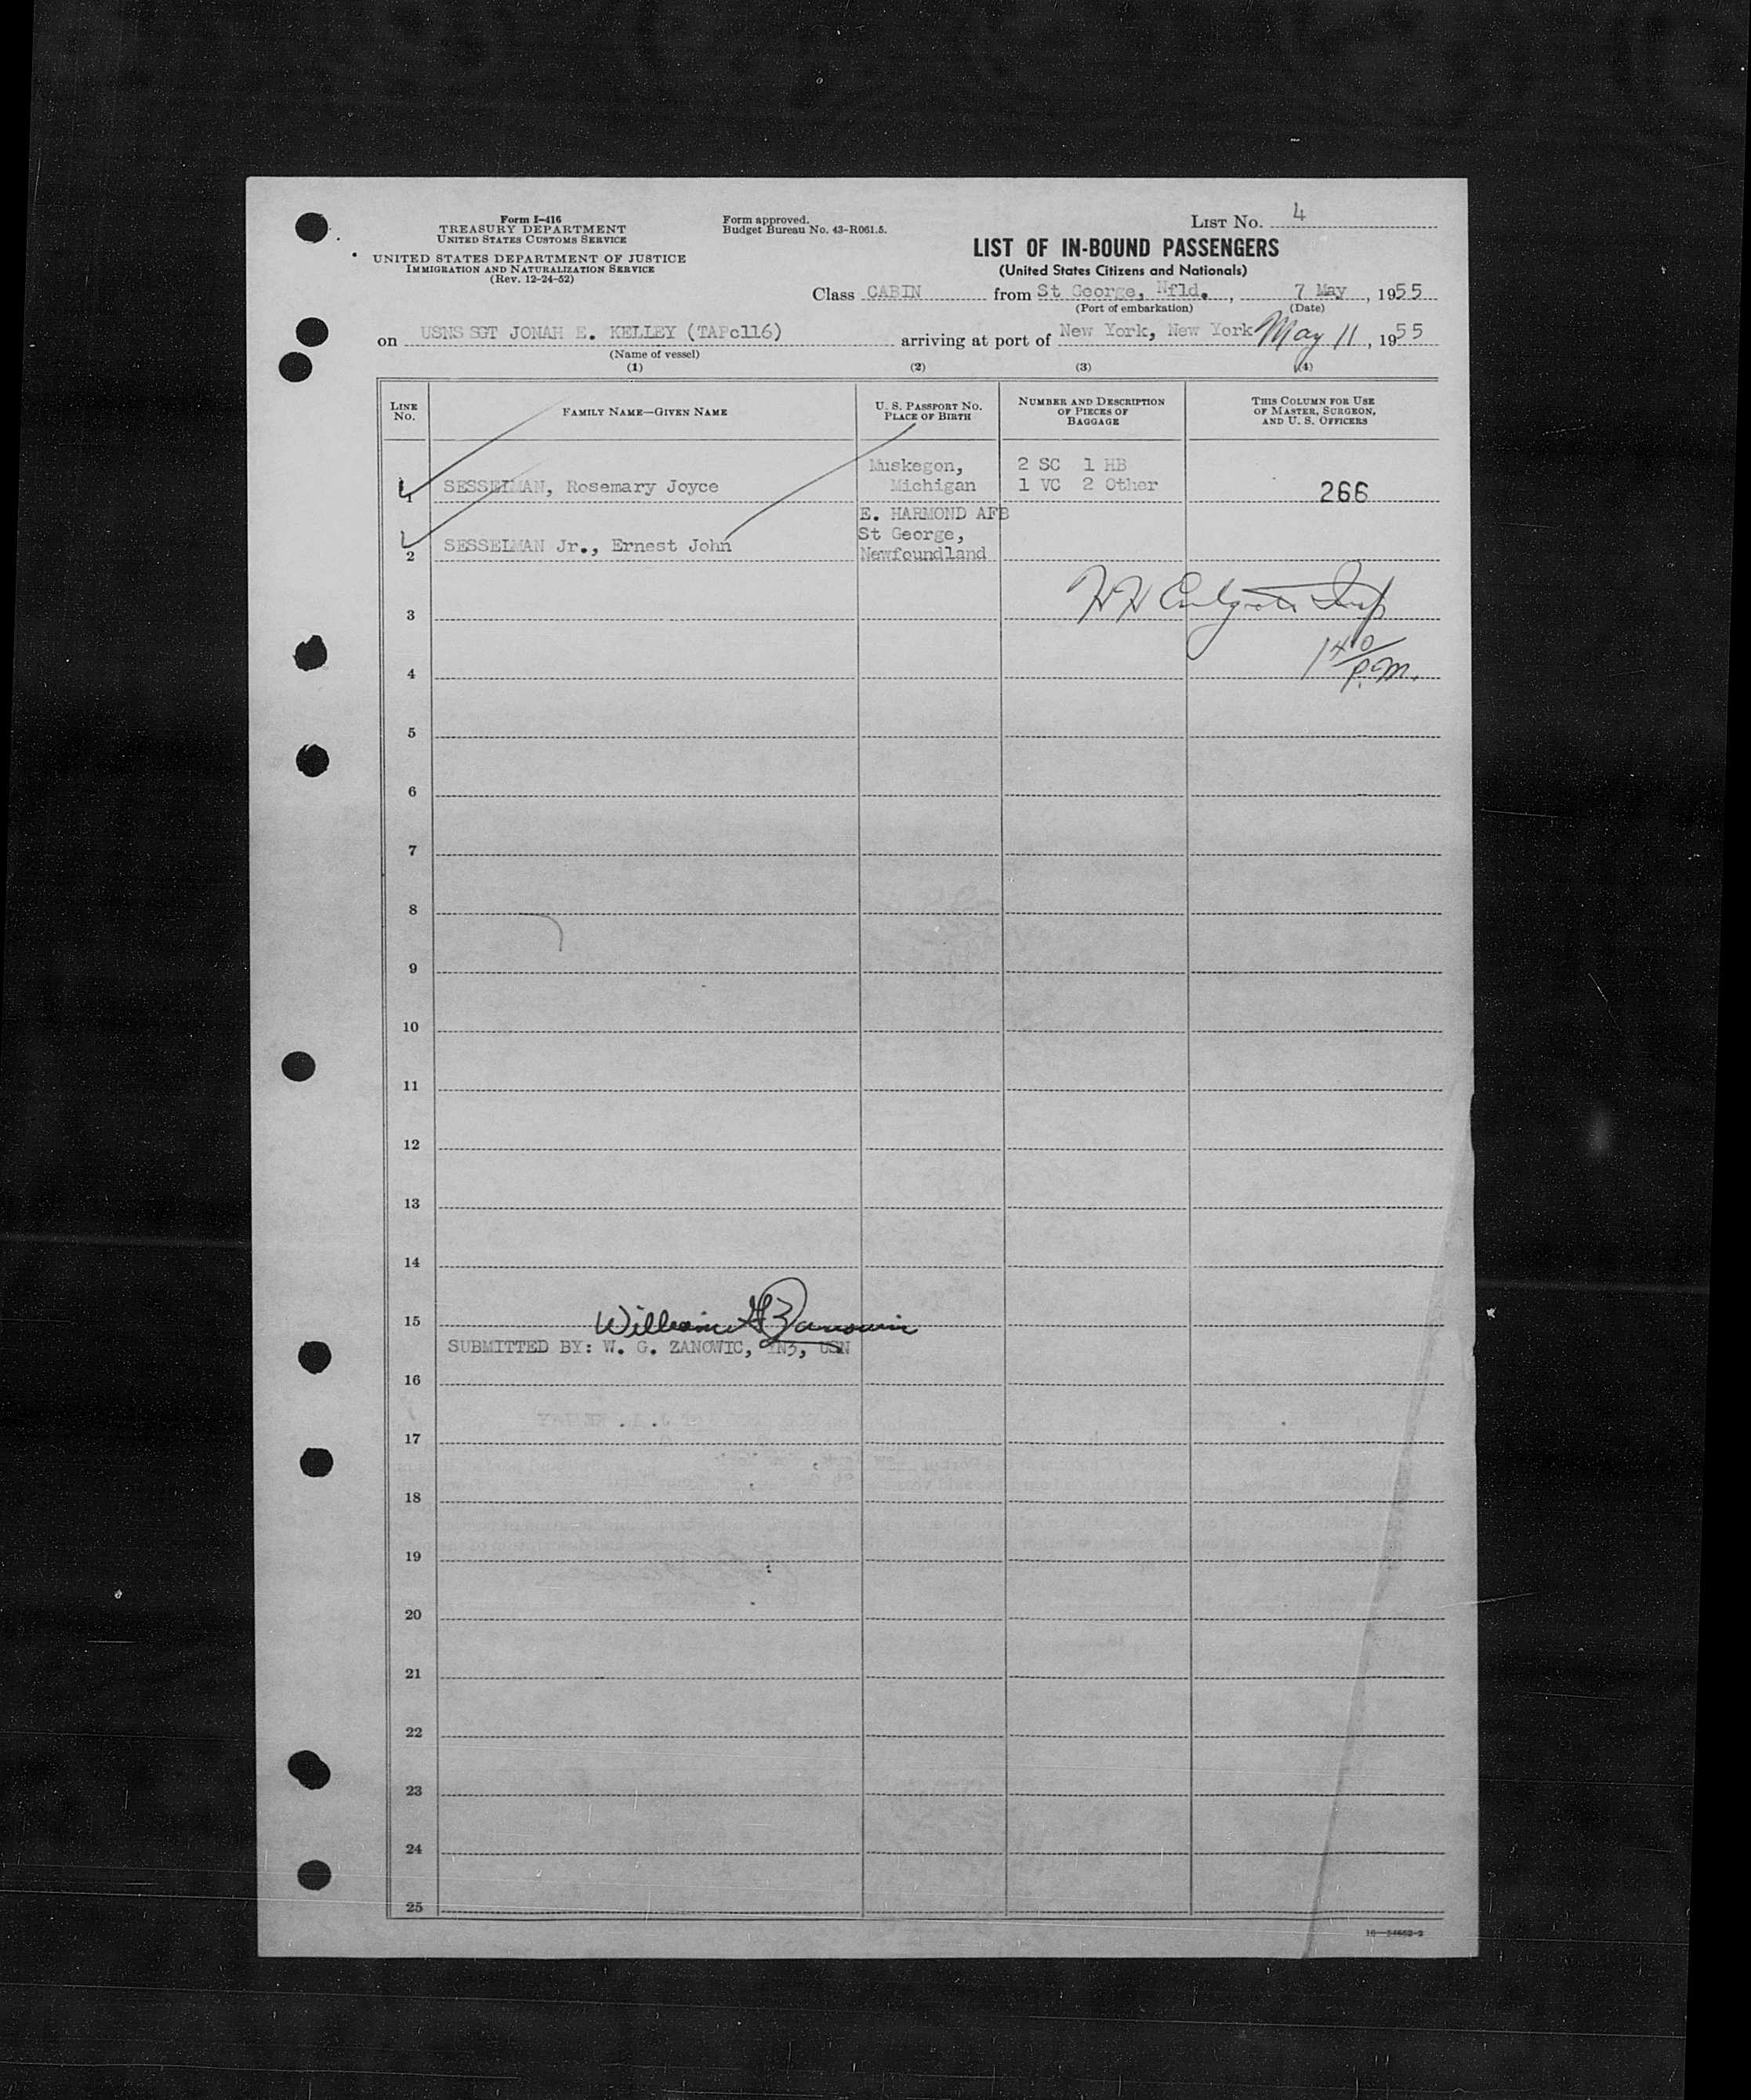 Form I-416
TREASURY DEPARTMENT
UNITED STATES CUSTOMS SERVICE
UNITED STATES DEPARTMENT OF JUSTICE
IMMIGRATION AND NATURALIZATION SERVICE
(Rev. 12-24-52)
Form approved.
Budget Bureau No. 43-R061.5.
LIST NO. 4
LIST OF IN-BOUND PASSENGERS
(United States Citizens and Nationals)
Class CABIN from St George, Nfld. , 7 May , 1955
(Port of embarkation) (Date)
on USNS SGT JONAH E. KELLEY (TAPc116) arriving at port of New York, New York May 11 , 1955
(Name of vessel)
(1) (2) (3) (4)
LINE NO. FAMILY NAME—GIVEN NAME U. S. PASSPORT NO. PLACE OF BIRTH NUMBER AND DESCRIPTION OF PIECES OF BAGGAGE THIS COLUMN FOR USE OF MASTER, SURGEON, AND U. S. OFFICERS
Muskegon, 2 SC 1 HB
1 SESSELMAN, Rosemary Joyce Michigan 1 VC 2 Other 266
E. HARMOND AFB
St George,
2 SESSELMAN Jr., Ernest John Newfoundland
3
140
P.M.
4
5
6
7
8
9
10
11
12
13
14
15 William G Zanowic
SUBMITTED BY: W. G. ZANOWIC, YN3, USN
16
17
18
19
20
21
22
23
24
25
16—54652-2